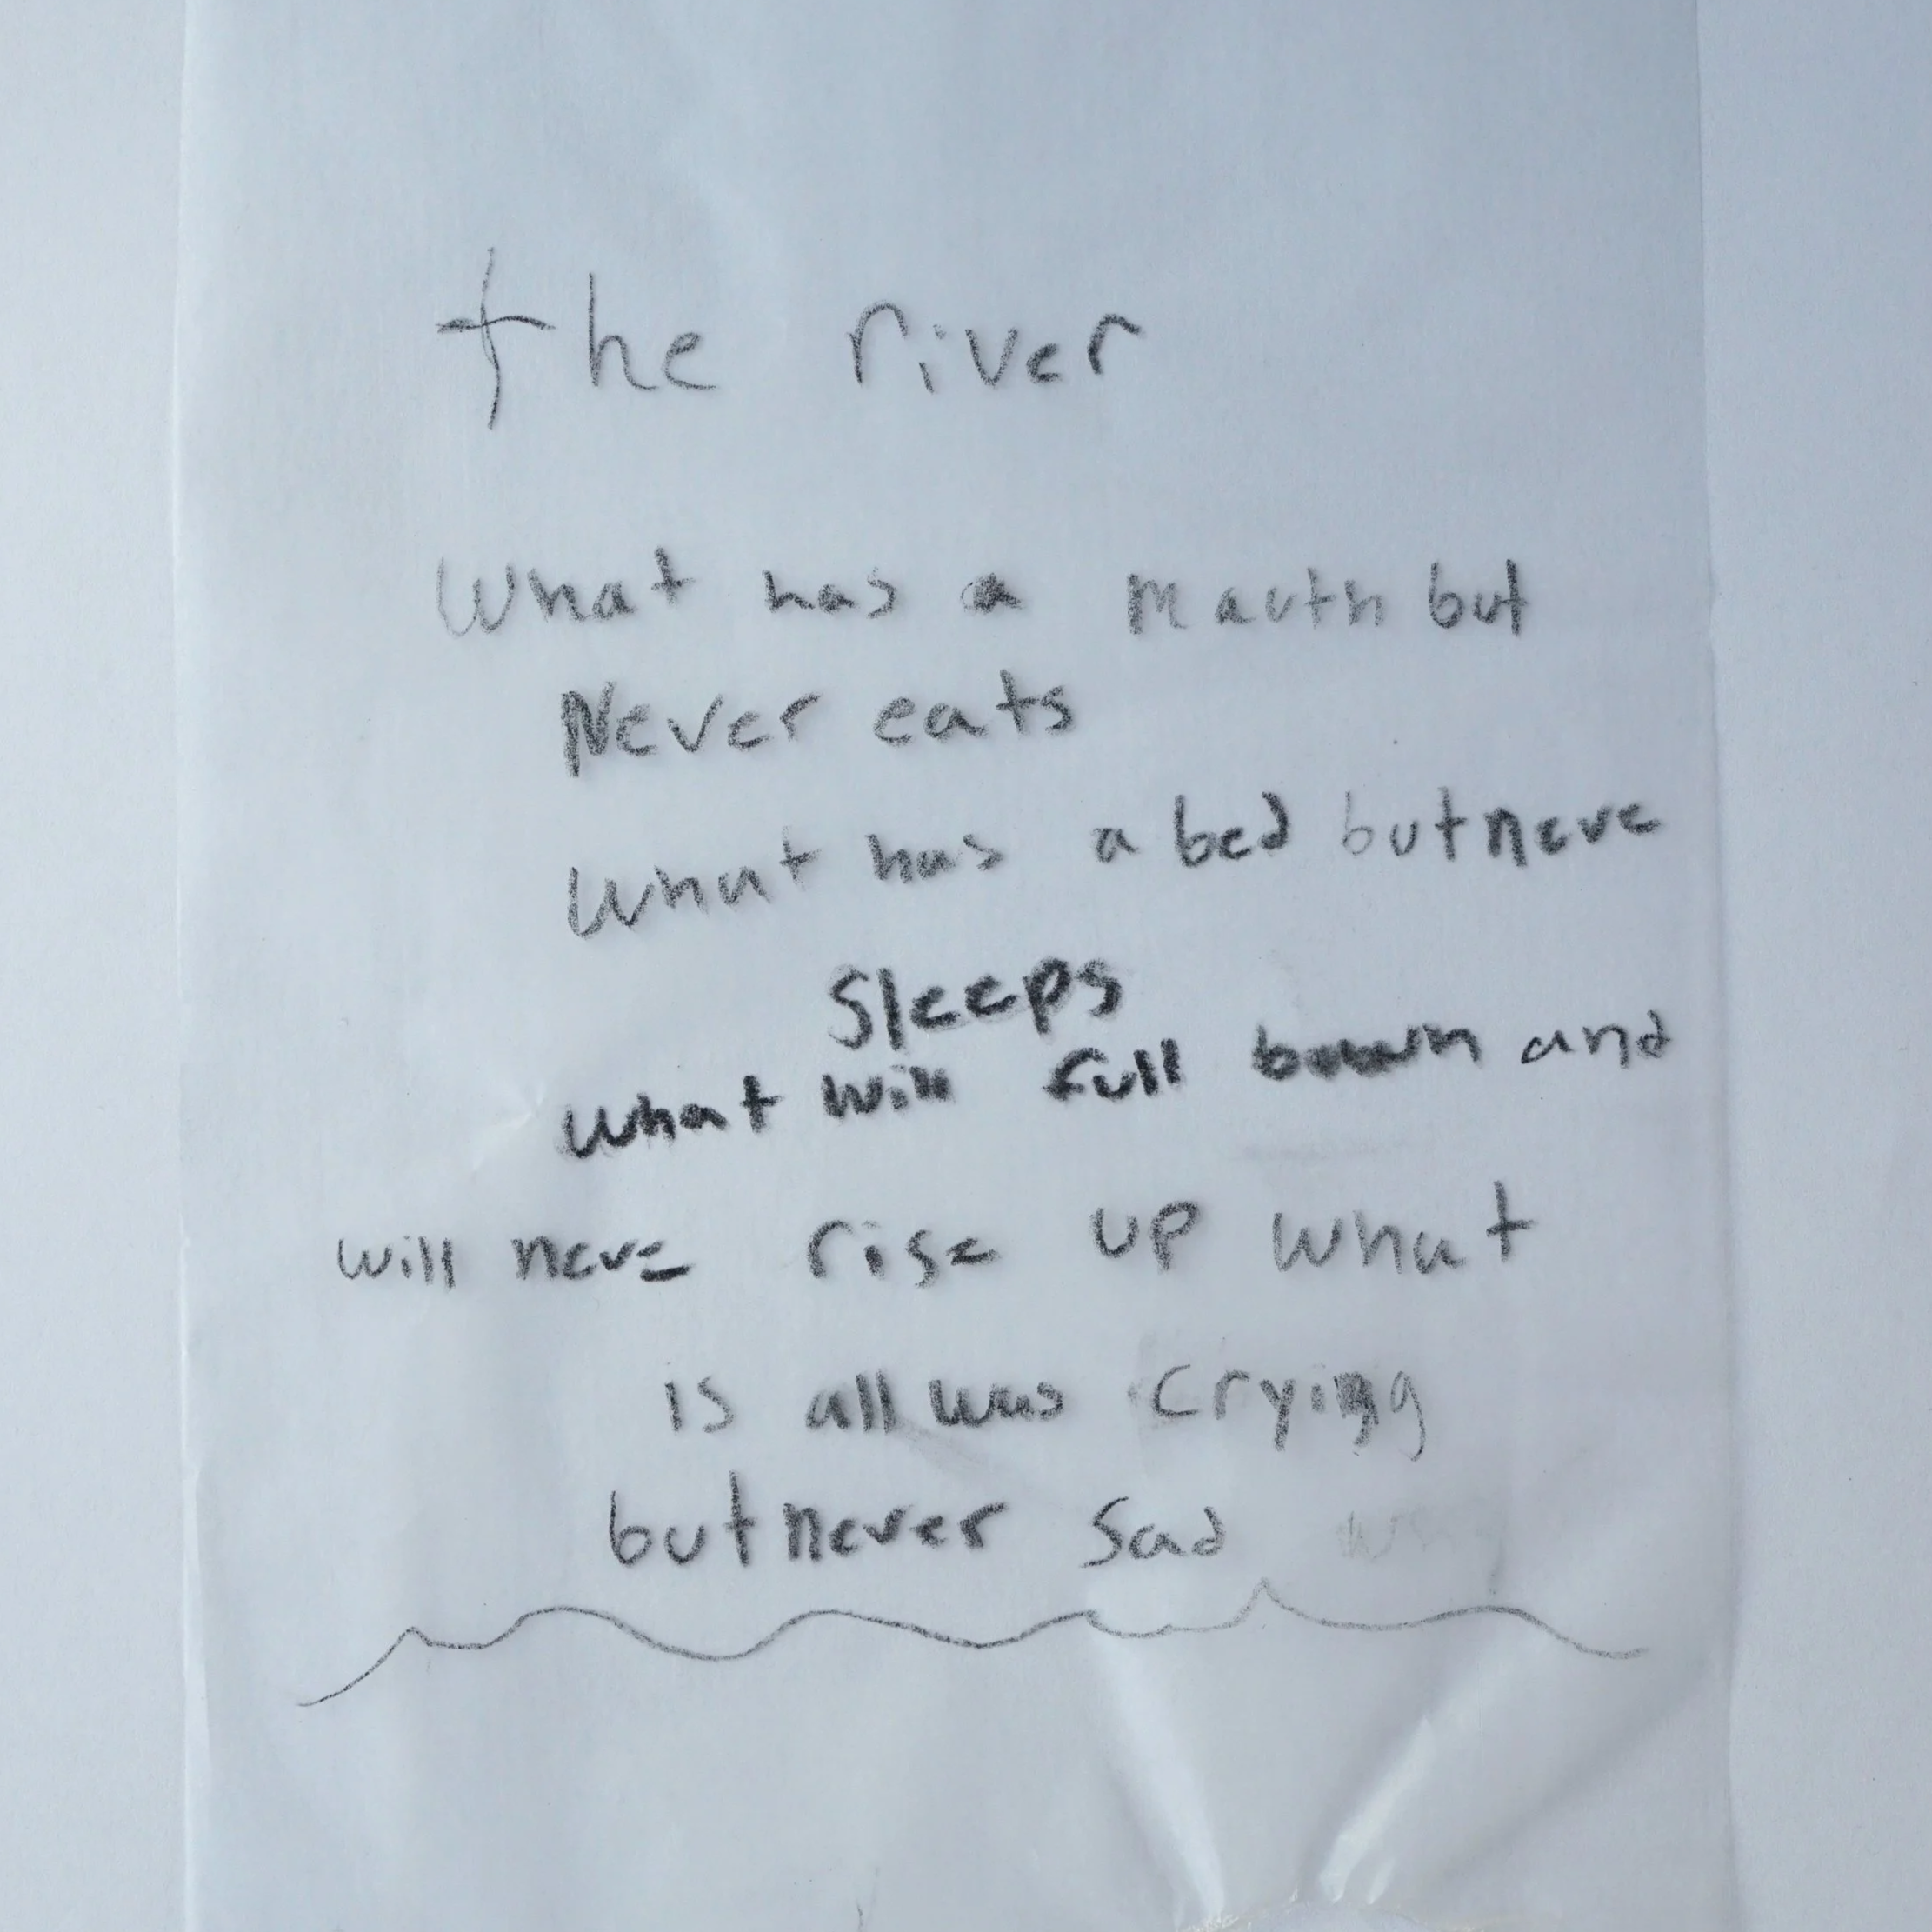 the river
What has a mauth but
Never eats
What has a bed but neve
Sleeps
what will full down and
will neve rise up what
is all was crying
but never sad why